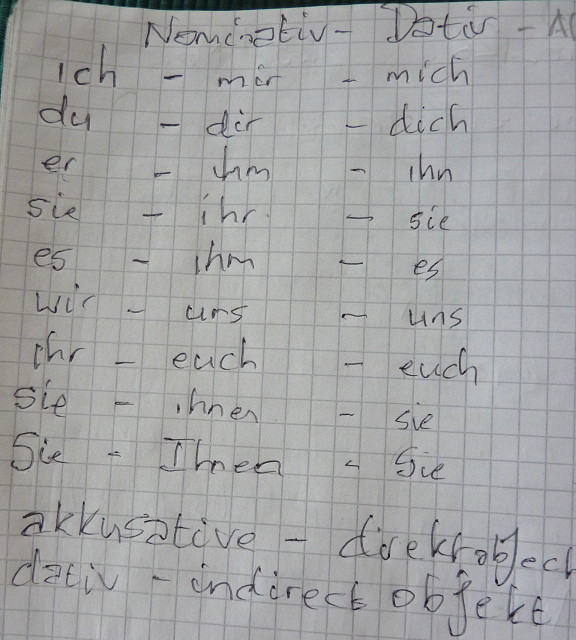 Nominativ - Dativ - A
ich - mir - mich
du - dir - dich
er - ihm - ihn
sie - ihr - sie
es - ihm - es
wir - uns - uns
ihr - euch - euch
sie - ihnen - sie
Sie - Ihnen - Sie
akkusative - direkt object
dativ - indirect objekt